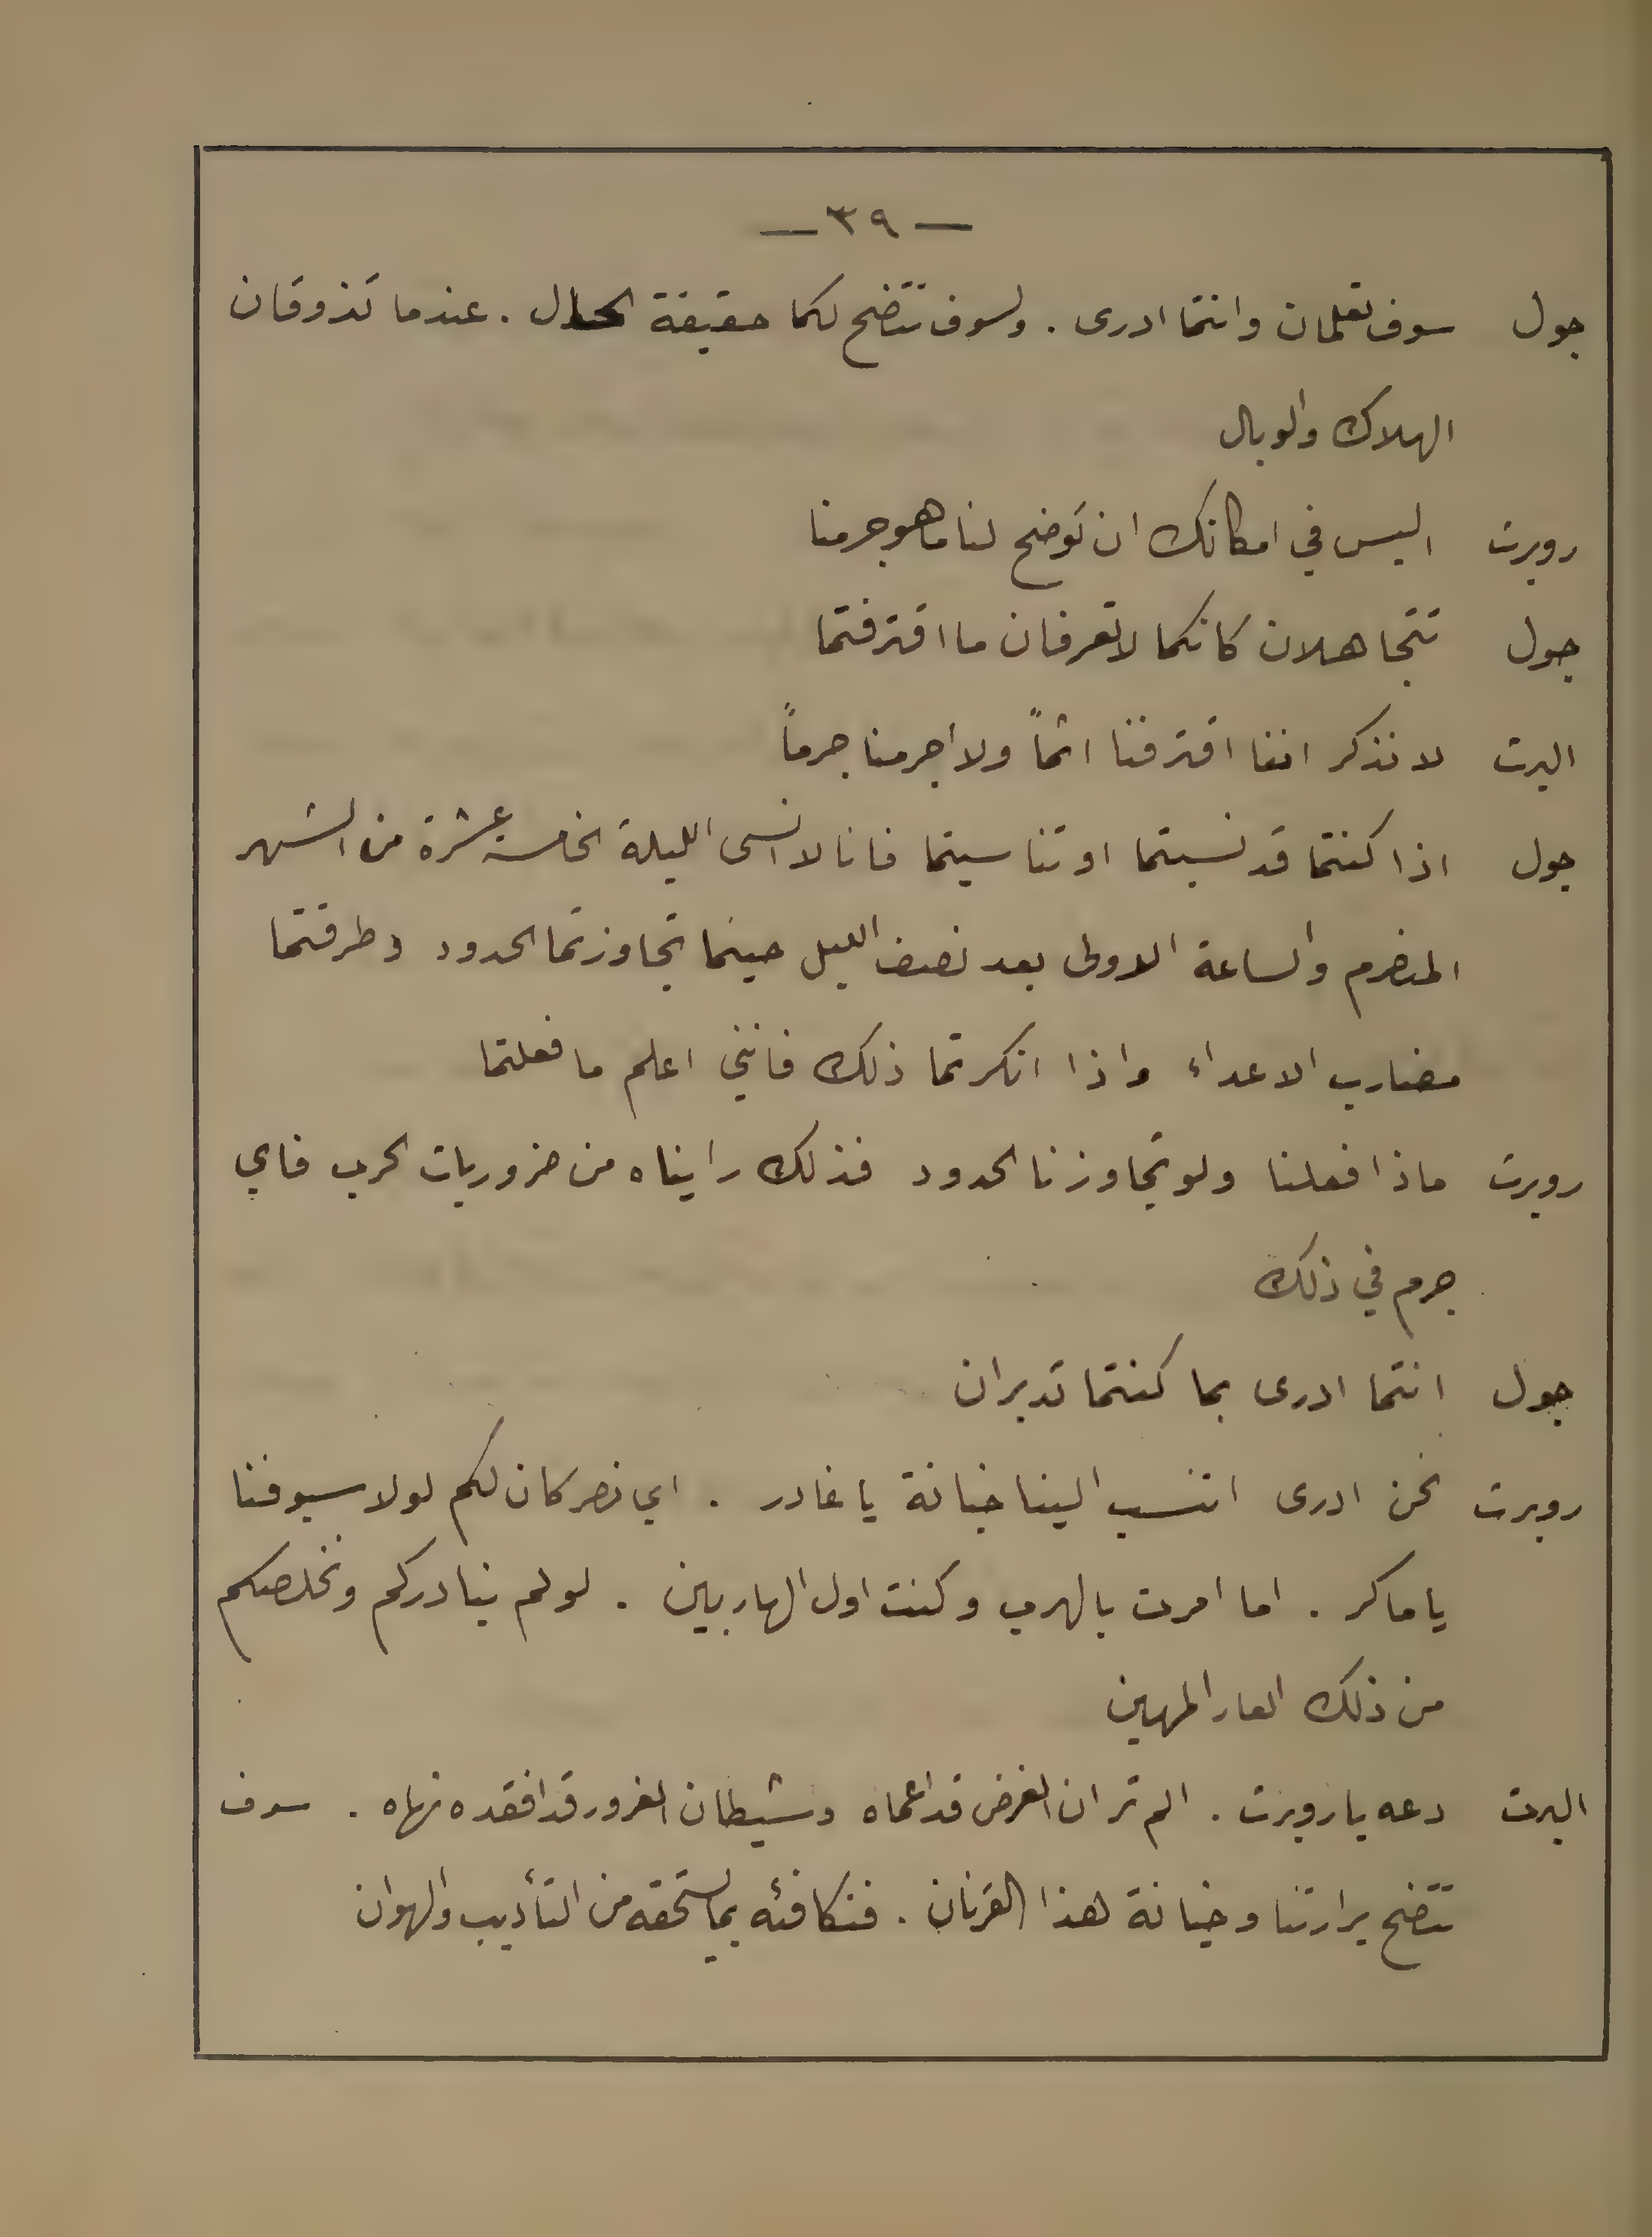 — ٣٩ —
جول سوف تعلمان وانتما ادرى . ولسوف تتضح لكما حقيقة الحال . عندما تذوقان
الهلاك والوبال
روبرت اليس في امكانك ان توضح لنا ما هو جرمنا
جول تتجاهلان كانكما لا تعرفان ما اقترفتما
البرت لا نذكر اننا اقترفنا اثماً ولا اجرمنا جرماً
جول اذا كنتما قد نسيتما او تناسيتما فانا لا انسى الليلة الخامسة عشرة من الشهر
المنصرم والساعة الاولى بعد نصف الليل حينما تجاوزتما الحدود وطرقتما
مضارب الاعداء واذا انكرتما ذلك فانني اعلم ما فعلتما
روبرت ماذا فعلنا ولو تجاوزنا الحدود فذلك رايناه من ضروريات الحرب فاي
جرم في ذلك
جول انتما ادرى بما كنتما تدبران
روبرت نحن ادرى اتنسب الينا خيانة يا غادر . اي نصر كان لكم لولا سيوفنا
يا ماكر . اما امرت بالهرب وكنت اول الهاربين . لو لم نبادركم ونخلصكم
من ذلك العار المهين
البرت دعه يا روبرت . الم تر ان الغرض قد اعماه وشيطان الغرور قد افقده نهاه . سوف
تتضح برارتنا وخيانة هذا القرنان . فنكافئه بما يستحقه من التأديب والهوان